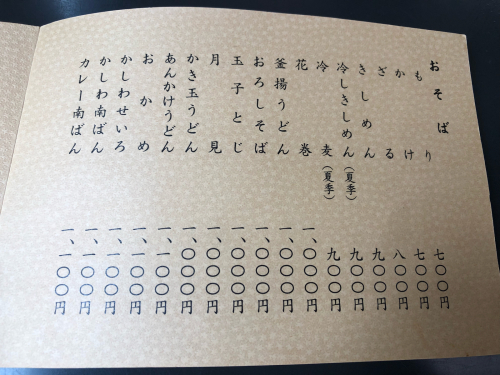 おそば
もり 七〇〇円
かけ 七〇〇円
ざる 八〇〇円
きしめん 九〇〇円
冷しきしめん（夏季） 九〇〇円
冷麦（夏季） 九〇〇円
花巻 一、〇〇〇円
釜揚うどん 一、〇〇〇円
おろしそば 一、〇〇〇円
玉子とじ 一、〇〇〇円
月見 一、〇〇〇円
かき玉うどん 一、〇〇〇円
あんかけうどん 一、一〇〇円
おかめ 一、一〇〇円
かしわせいろ 一、一〇〇円
かしわ南ばん 一、一〇〇円
カレー南ばん 一、一〇〇円